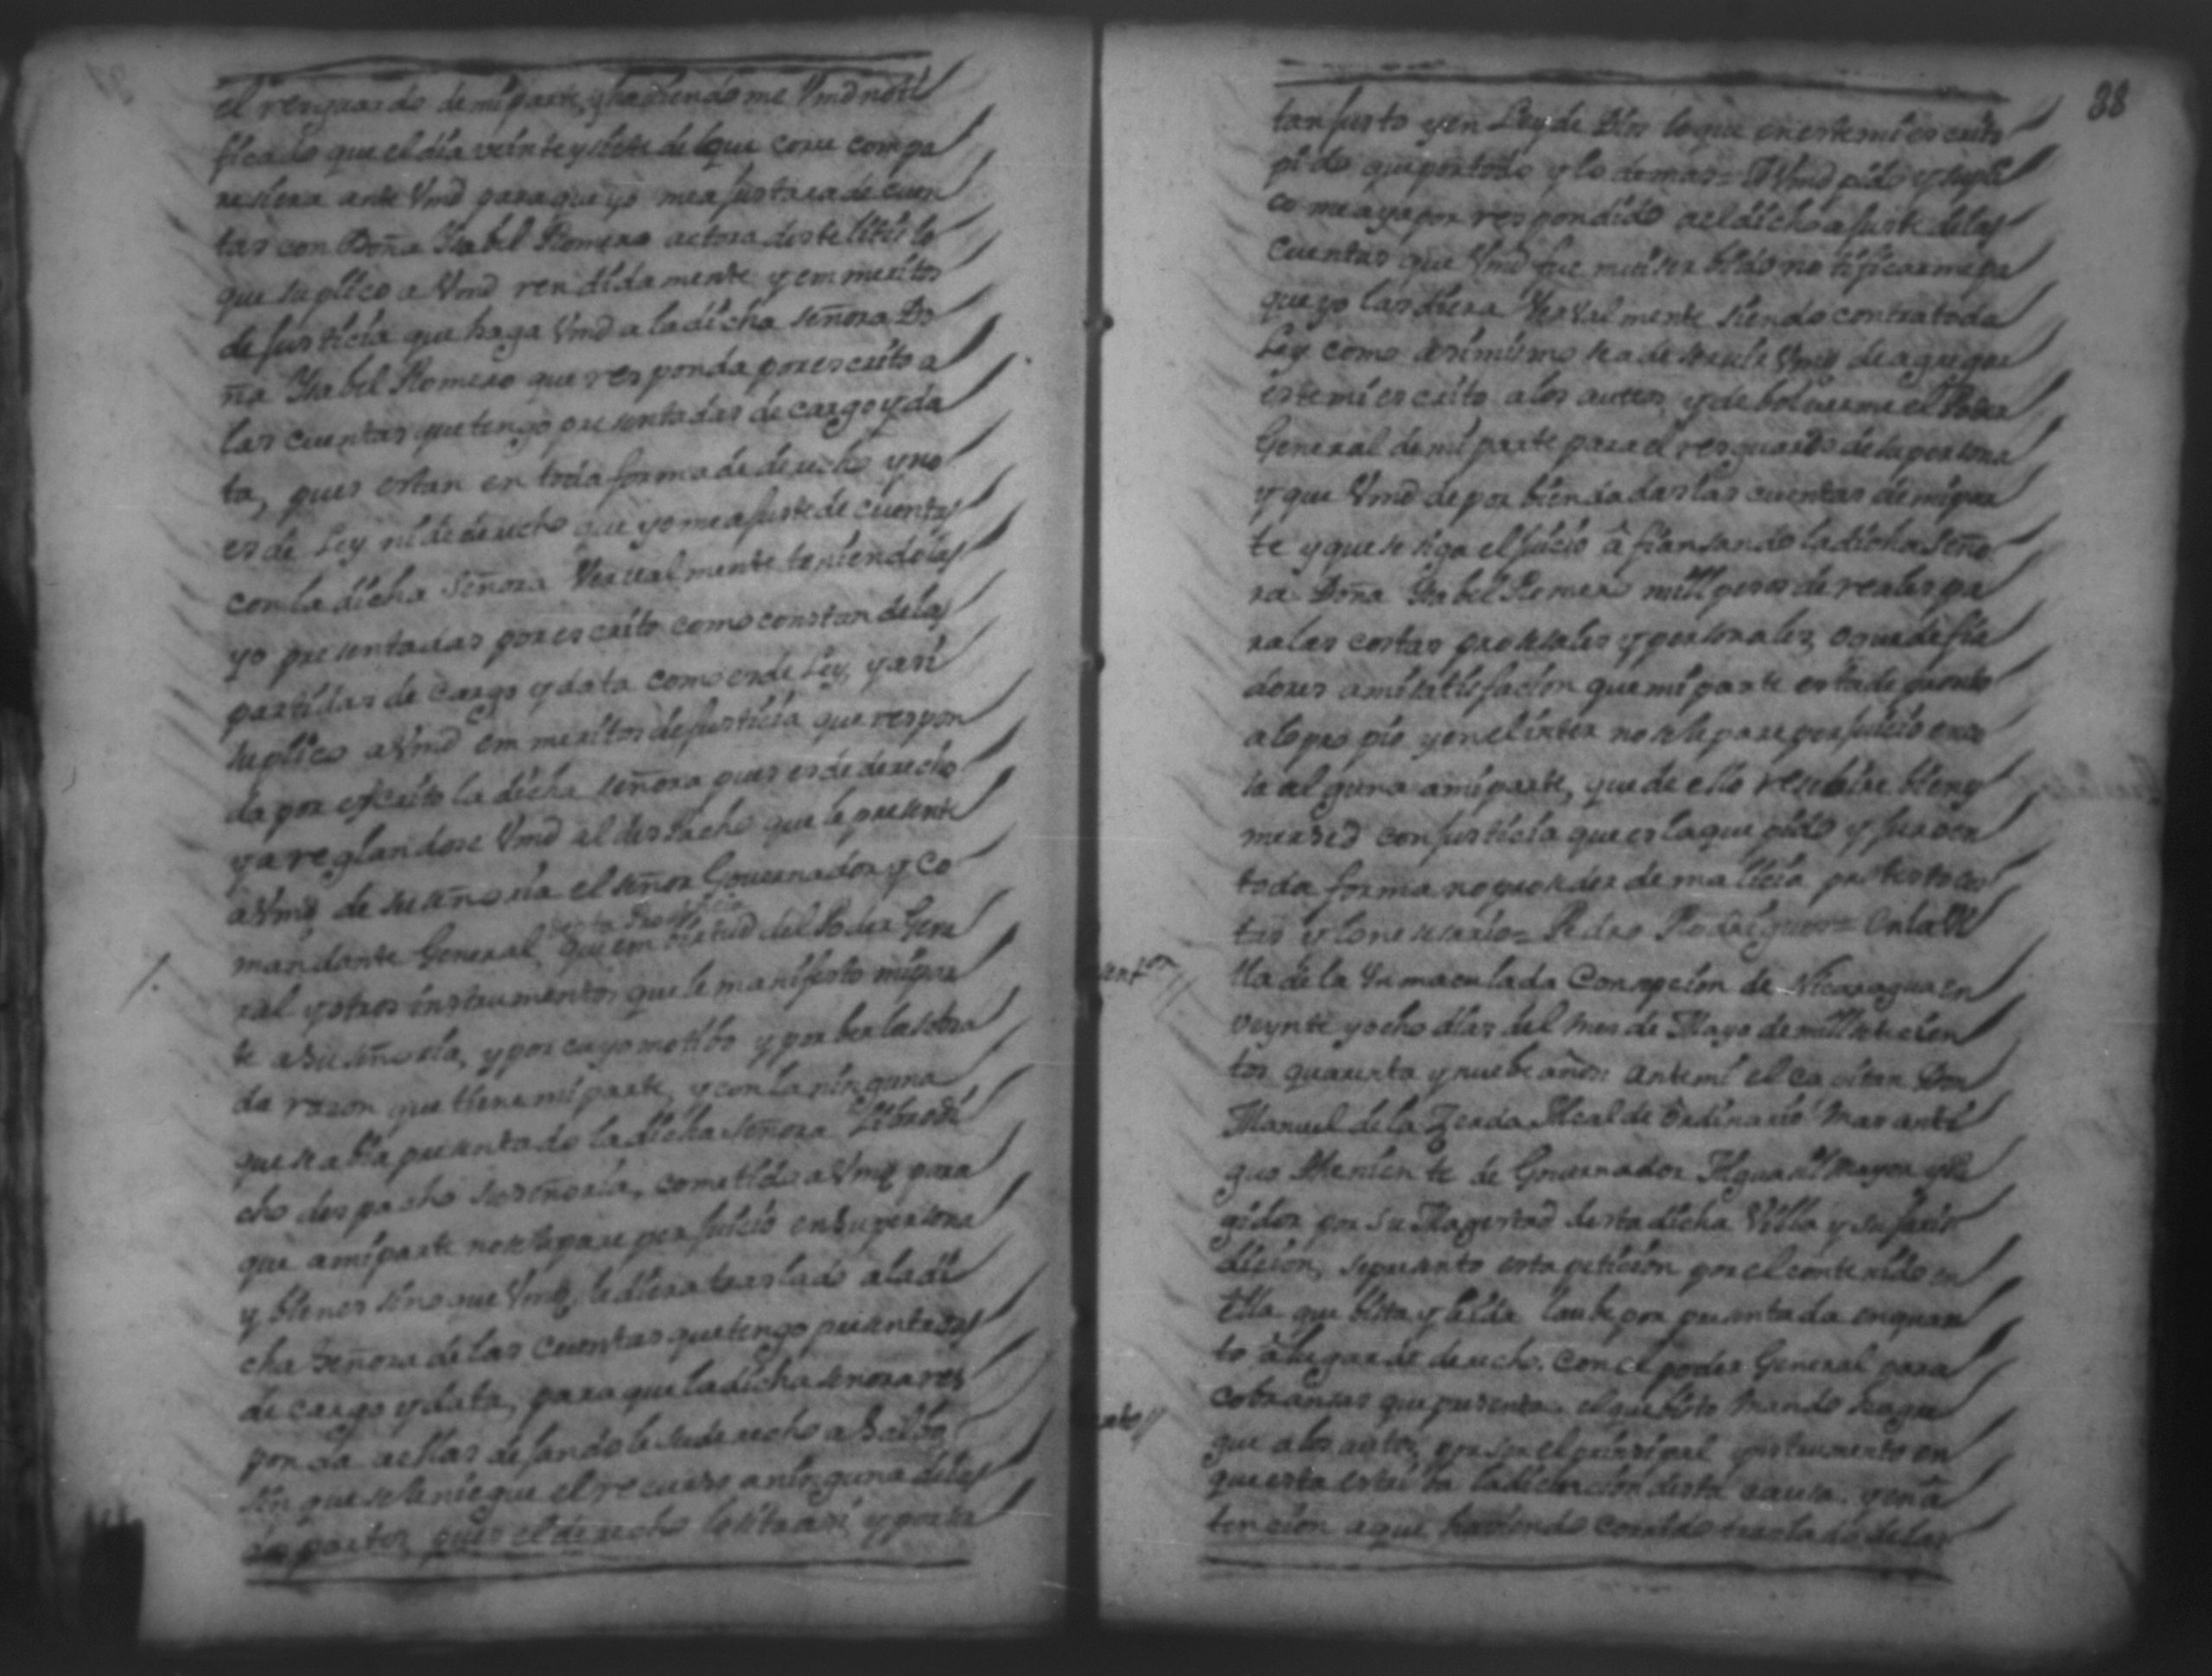 el resguardo de mi parte, y haviendome Vmd noti
ficado que el dia veinte y siete del que corre compa
resiera ante Vmd para que yo me ajustara de cuen
tas con Doña Ysabel Romero actora deste litis lo
que suplico a Vmd rendidamente y em meritos
de justicia que haga Vmd a la dicha señora Do
ña Ysabel Romero que responda por escrito a
las cuentas que tengo presentadas de cargo y da
ta, pues estan en toda forma de derecho y no
es de Ley ni de derecho que yo me ajuste de cuentas
con la dicha señora Vervalmente teniendolas
yo presentadas por escrito como constan de las
partidas de cargo y data como es de Ley, y asi
suplico a Vmd em meritos de justicia que respon
da por escrito la dicha señora pues es de derecho
y areglandose Vmd al despacho que le presente
a Vmd de su señoria el señor Governador y Co
mandante General que em birtud del Poder Gene
ral y otros instrumentos que le manifesto mi par
te a su señoria, y por cuyo motibo y por ber la sobra
da razon que tiene mi parte, y con la ninguna
que se abia presentado la dicha señora Libro di
cho despacho su señoria, cometido a Vmd para
que a mi parte no se le pare perjuicio en su persona
y bienes sino que Vmd, le diera traslado a la di
cha señora de las cuentas que tengo presentadas
de cargo y data, para que la dicha señora res
ponda a ellas dejandole su derecho a salbo
sin que se le niegue el recurso a ninguna de las
dos partes, pues el derecho lo sita asi y por ser
38
tan justo y en Ley de Dios lo que en este mi escrito
pido que por todo y lo demas = A Vmd pido y supli
co me aya por respondido a el dicho ajuste de las
cuentas que Vmd fue mui serbido notificarme pa
que yo las diera Vervalmente siendo contra toda
Ley como asimismo se a de serbir Vmd de agregar
este mi escrito a los autos y debolverme el Poder
General de mi parte para el resguardo de su persona
y que Vmd de por bien dadas las cuentas de mi par
te y que se siga el juicio afiansando la dicha seño
ra Doña Ysabel Romero mill pesos de reales pa
ra las costas prosesales y personales, o que de fia
dores a mi satisfacion que mi parte esta de pronto
a lo propio y en el inter no se le pare perjuicio en co
sa alguna a mi parte, que de ello resebire bien y
mersed con justicia que es la que pido y juro en
toda forma no proseder de malicia protesto cos
tas y lo nesesario = Pedro Rodriguez = En la Vi
lla de la Ynmaculada Consepcion de Nicaragua en
veynte y ocho dias del mes de Mayo de mill setecien
tos quarenta y nuebe años: ante mi el Capitan Don
Manuel de la Zerda Alcalde Ordinario mas anti
guo Theniente de Governador Alguasil Mayor y Re
gidor por su Magestad desta dicha Villa y su juris
dicion, se presento esta peticion por el contenido en
Ella que bista y leida la ube por presentada en quan
to a lugar de derecho. Con el poder General para
cobransas que presenta el que bisto mando se agre
gue a los autos, por ser el prinsipal instrumento en
que esta estriba la disicion desta causa. y en a
tencion a que haviendo corrido traslado de las